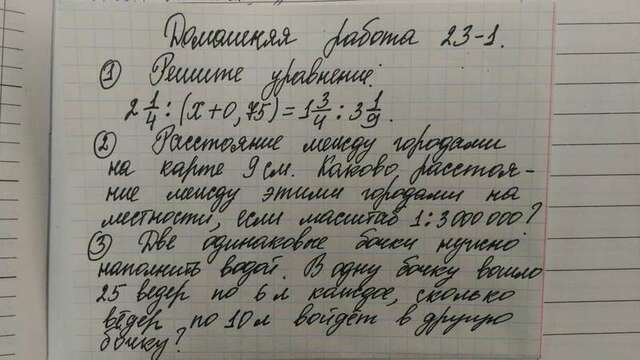 Домашняя работа 23-1.
① Решите уравнение:
2 1/4 : (x+0,75) = 1 3/4 : 3 1/9.
② Расстояние между городами
на карте 9 см. Каково расстоя-
ние между этими городами на
местности, если масштаб 1:3 000 000?
③ Две одинаковые бочки нужно
наполнить водой. В одну бочку вошло
25 ведер по 6 л каждое, сколько
вёдер по 10 л войдёт в другую
бочку?